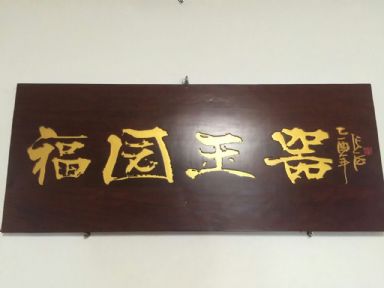 福园玉器
乙酉年